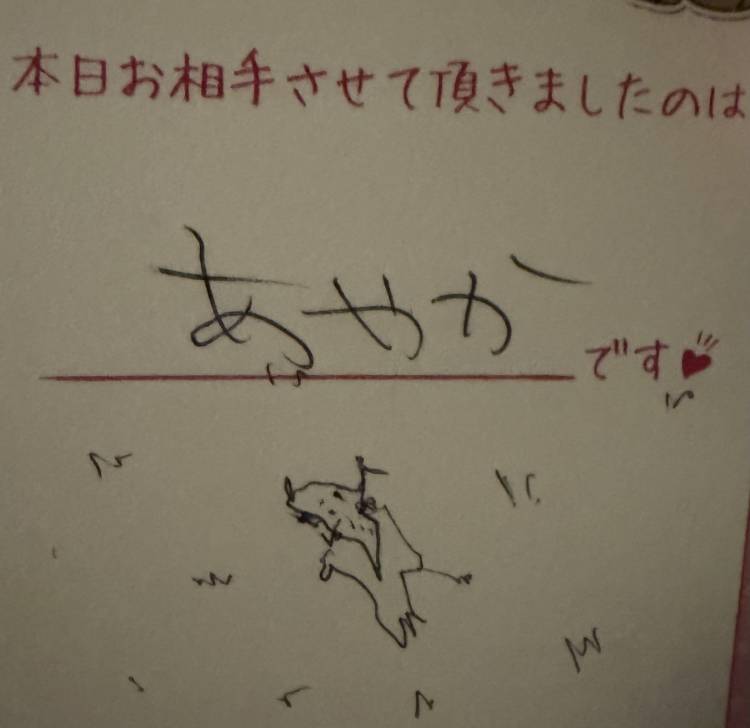 本日お相手させて頂きましたのは
あやか
です